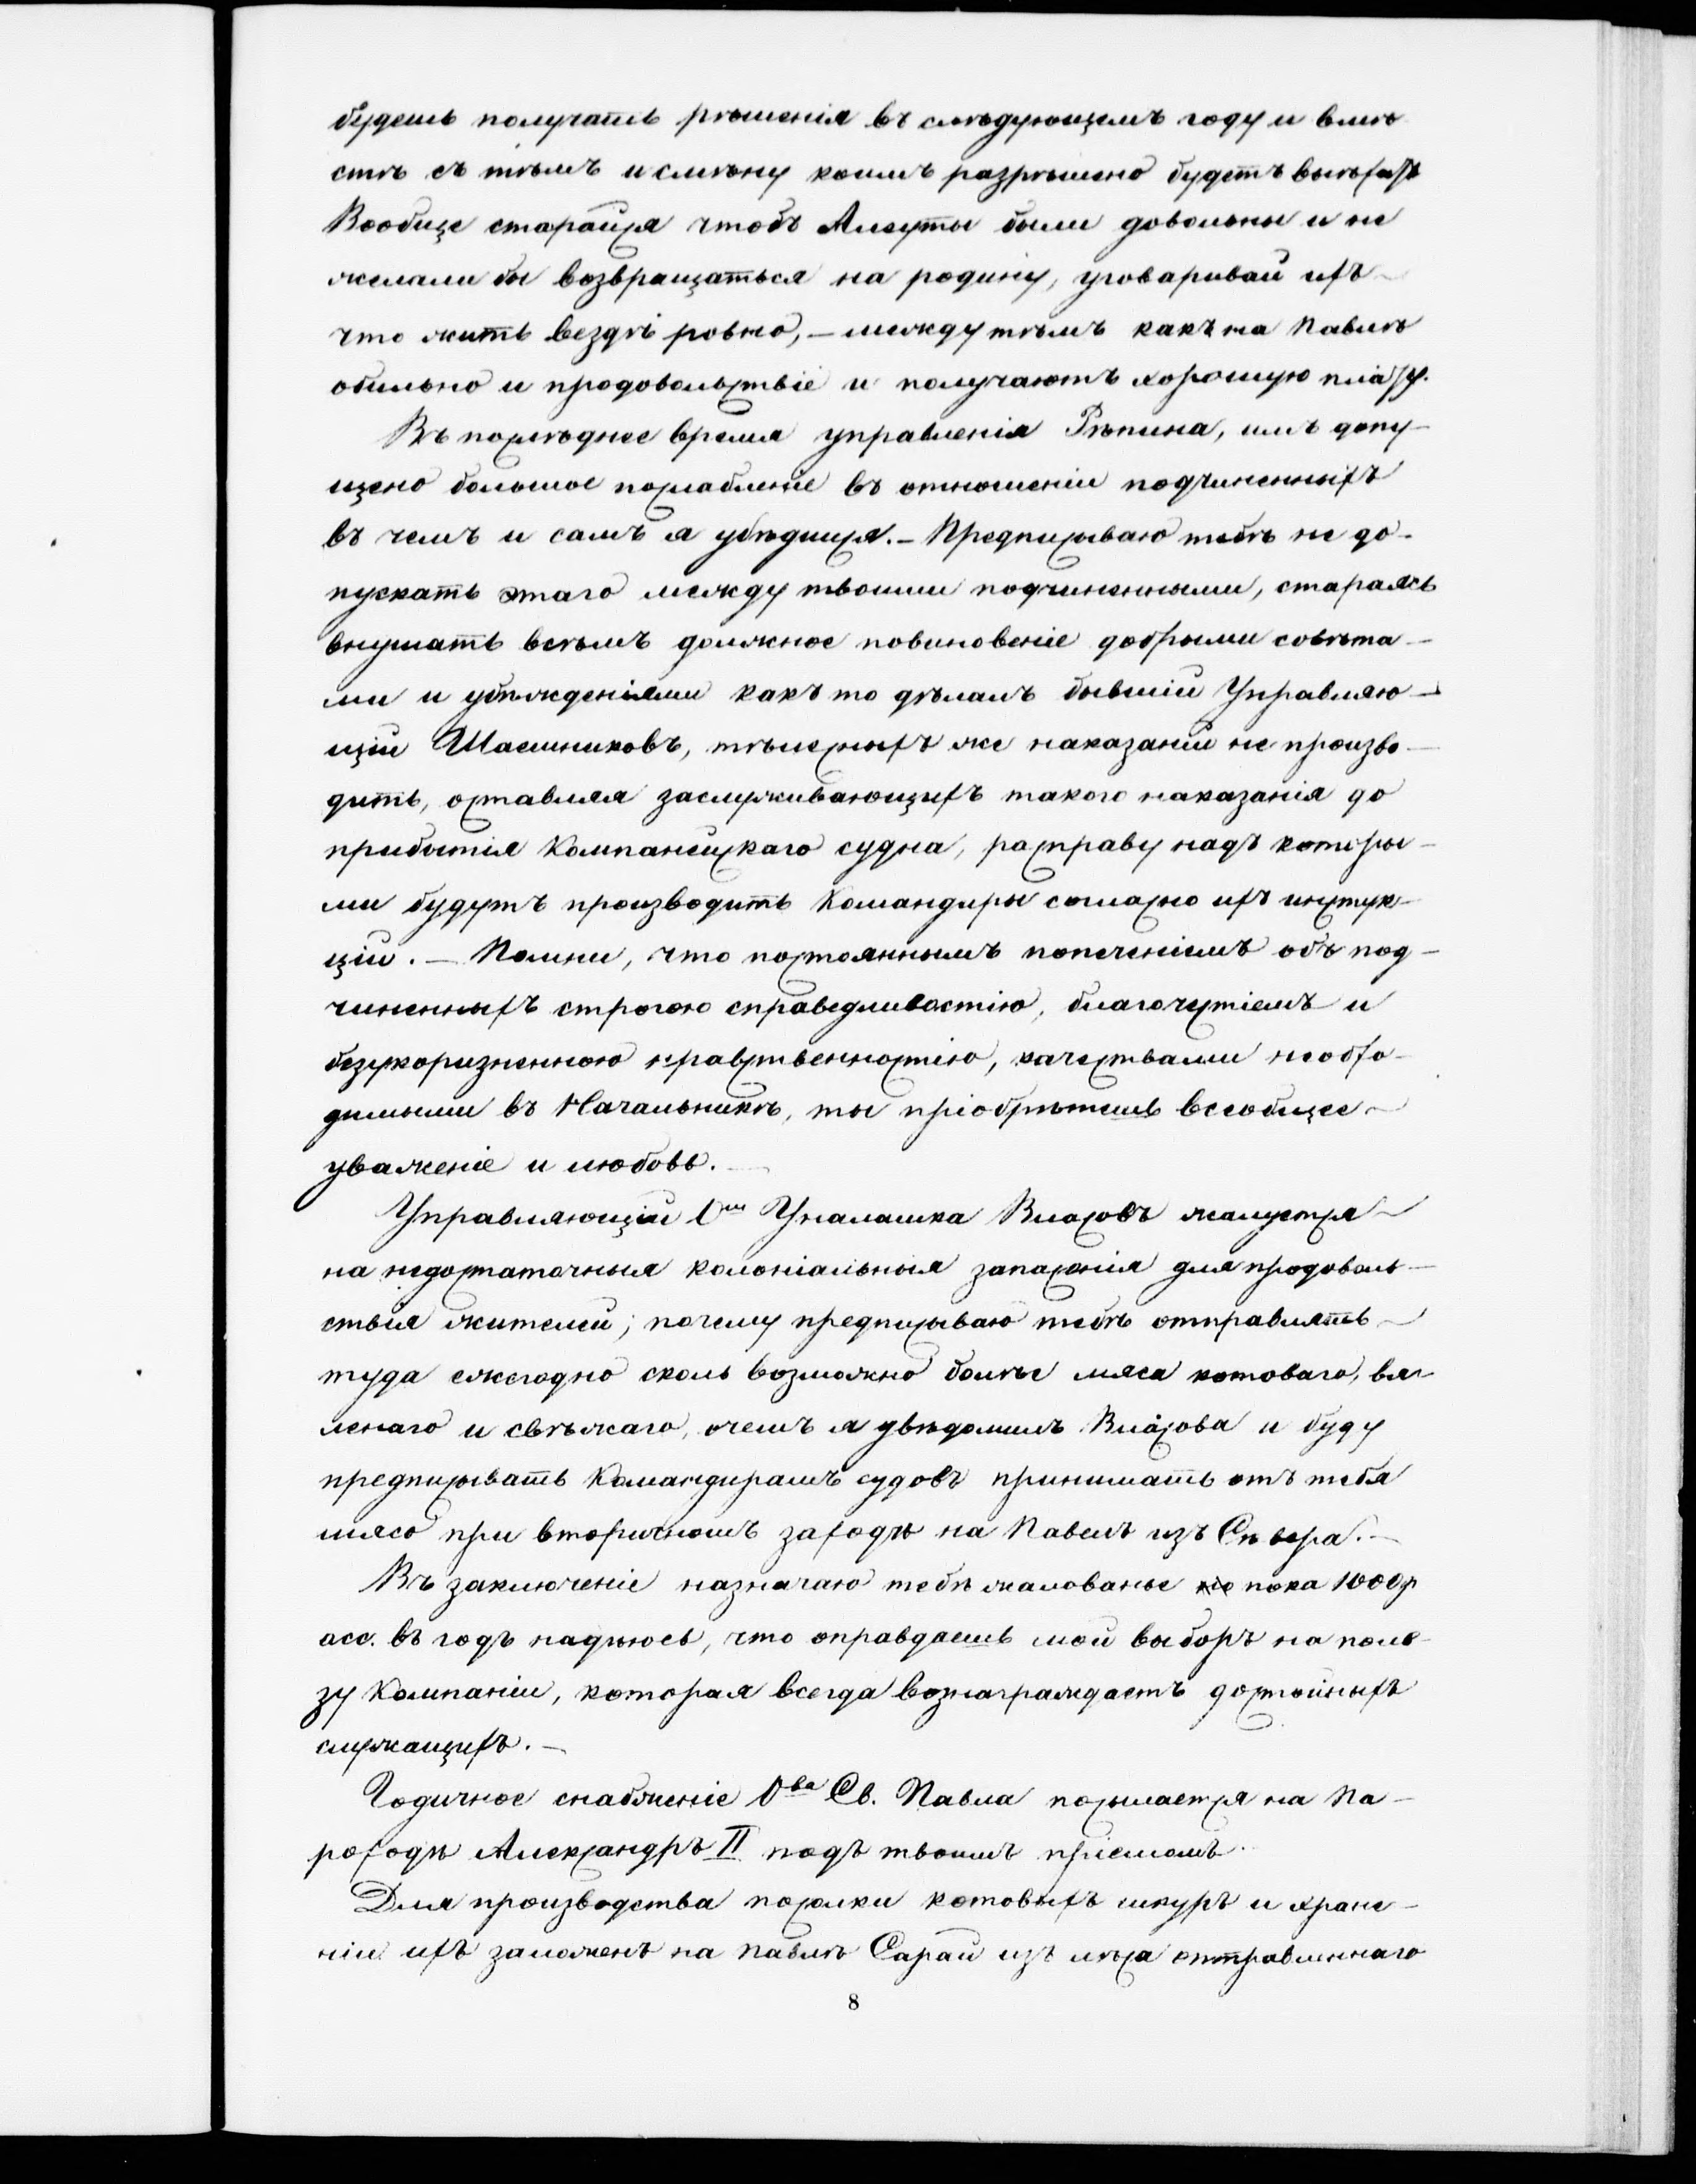 будешь получать рѣшенія въ слѣдующемъ году и вмѣ
стѣ съ тѣмъ и смѣну коимъ разрѣшено будетъ выѣхать
Вообще старайся чтобъ Алеуты были довольны и не
желали бы возвращаться на родину, уговаривай ихъ
что жить вездѣ ровно, – между тѣмъ какъ на Павлѣ
обильно и продовольствіе и получаютъ хорошую плату.
Въ послѣднее время управленія Рѣпина, имъ допу-
щено большое послабленіе въ отношеніи подчиненныхъ
въ чемъ и самъ я убѣдился. – Предписываю тебѣ не до-
пускать этаго между твоими подчиненными, стараясь
внушать всѣмъ должное повиновеніе добрыми совѣта-
ми и убѣжденіями какъ то дѣлалъ бывшій Управляю-
щій Шаешниковъ, тѣлесныхъ же наказаній не произво-
дить, оставляя заслуживающихъ такого наказанія до
прибытія Компанейскаго судна, расправу надъ которы-
ми будутъ производить Командиры согласно ихъ инструк-
ціи. – Помни, что постояннымъ попеченіемъ объ под-
чиненныхъ строгою справедливостію, благочестіемъ и
безукоризненною нравственностію, качествами необхо-
димыми въ Начальникѣ, ты пріобрѣтешь всеобщее
уваженіе и любовь.
Управляющій Уналашка Власовъ жалуется
на недостаточныя колоніальныя запасенія для продоволь-
ствія жителей; почему предписываю тебѣ отправлять
туда ежегодно сколь возможно болѣе мяса котоваго, вя-
ленаго и свѣжаго, очемъ я увѣдомилъ Власова и буду
предписывать Командирамъ судовъ принимать отъ тебя
мясо при вторичномъ заходѣ на Павелъ изъ Сѣвера. –
Въ заключеніе назначаю тебѣ жалованье пока 1000 р
асс. въ годъ надѣюсь, что оправдаешь мой выборъ на поль-
зу Компаніи, которая всегда вознаграждаетъ достойныхъ
служащихъ. –
Годичное снабженіе О^ва Св. Павла посылается на Па-
роходѣ Александръ II подъ твоимъ пріемомъ.
Для производства посолки котовыхъ шкуръ и хране-
ніи ихъ заложенъ на Павлѣ Сарай изъ лѣса отправленнаго
8